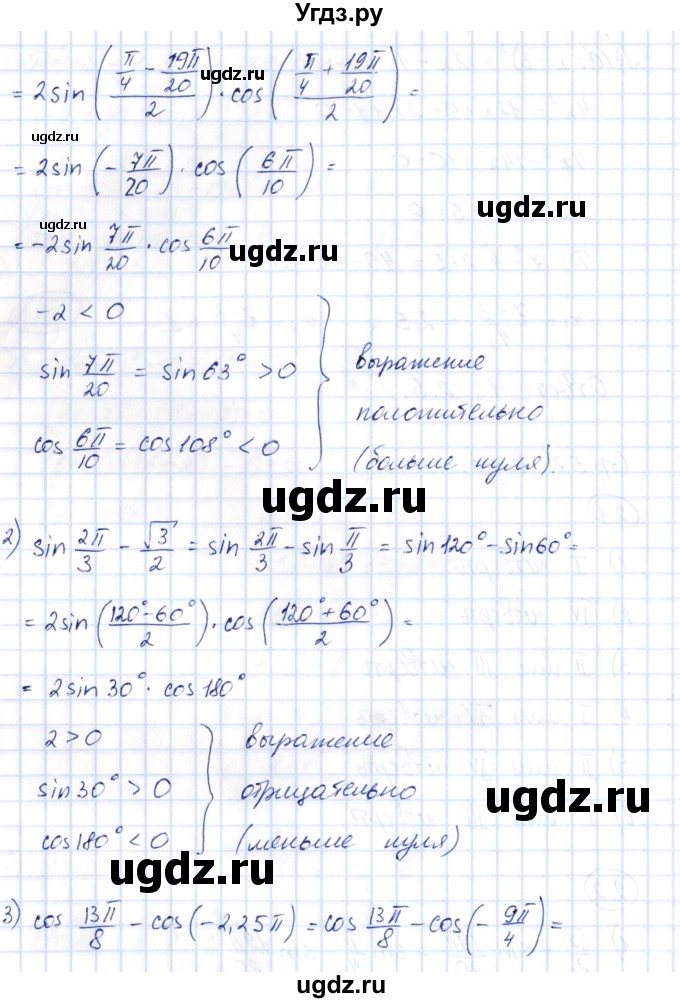 Угдз.ру
= 2sin((π/4 − 19π/20)/2) · cos((π/4 + 19π/20)/2) =
ugdz.ru
ugdz.ru
= 2sin(−7π/20) · cos(6π/10) =
ugdz.ru
ugdz.ru
= −2sin 7π/20 · cos 6π/10
ugdz.ru
−2 < 0
sin 7π/20 = sin 63° > 0
cos 6π/10 = cos 108° < 0
выражение
положительно
(больше нуля).
ugdz.ru
2) sin 2π/3 − √3/2 = sin 2π/3 − sin π/3 = sin 120° − sin 60° =
= 2sin((120°−60°)/2) · cos((120°+60°)/2) =
ugdz.ru
= 2sin 30° · cos 180°
2 > 0
sin 30° > 0
cos 180° < 0
выражение
отрицательно
(меньше нуля)
ugdz.ru
ugdz.ru
3) cos 13π/8 − cos(−2,25π) = cos 13π/8 − cos(−9π/4) =
ugdz.ru